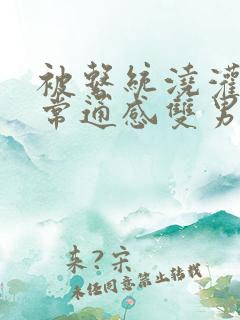 被繫統澆灌
常通感雙男
来?宋
未经同意禁止转载